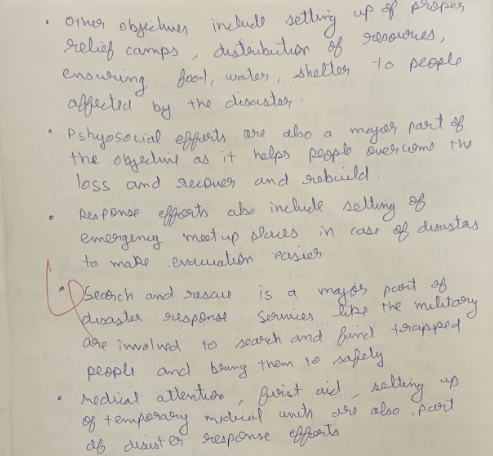 • Other objectives include setting up of proper
relief camps, distribution of resources,
ensuring food, water, shelter to people
affected by the disaster.
• Pshyosocial efforts are also a major part of
the objective as it helps people overcome the
loss and recover and rebuild.
• Response efforts also include setting of
emergency meetup places in case of disasters
to make evacuation easier.
• Search and rescue is a major part of
disaster response. Services like the military
are involved to search and find trapped
people and bring them to safety
• Medical attention, first aid, setting up
of temporary medical units are also part
of disister response efforts.